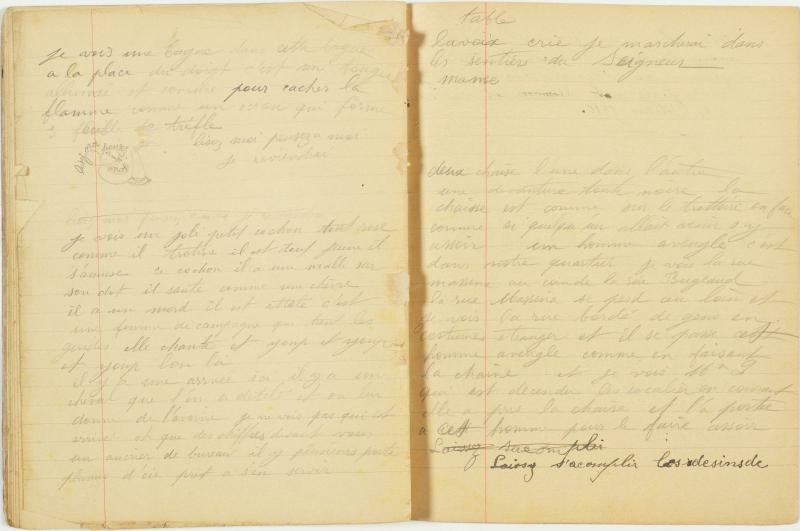 je vois une bague dans cette bague
a la place du doigt c'est un
est pour cacher la
flamme comme un ecran qui forme
3 feuille de trèfle
lisez moi pensez a moi
je reviendrai
je vois un joli petit cochon tout rose
comme il trotine il est tout jeune et
s'amuse ce cochon il a une malle sur
son dot il saute comme une chèvre
il a un mord il est attele c'est
une femme de campagne qui tient les
guides elle chante et youp et youp
et youp lon la
il y a une arrivée ici il y a un
cheval que l'on a detelé et on lui
donne de l'avoine je ne vois pas qui est
arrivé et que des chiffres devant vous
un encrier de bureau il y plusieurs porte
plume d'oie pret a s'en servir
table
la voix crie je marcherai dans
les sentiers du Seigneur
meme
deux chaise l'une dans l'autre
une devanture toute noire la
chaise est comme sur le trottoire en face
comme si quelqu'un allait venir s'y
assoir un homme aveugle c'est
dans notre quartier je vois la rue
massena au coin de la rue Bugeaud
la rue Massena se perd au loin et
je vois la rue bordé de gens en
costumes etranger et il se passe cet
homme aveugle comme en faisant
la chaine et je vois Mme
qui est decendu les escalier en courant
elle a prie la chaise et l'a portée
a cet homme pour le faire assoir
Laissez saccomplir
Laissez s'acomplir les desins de